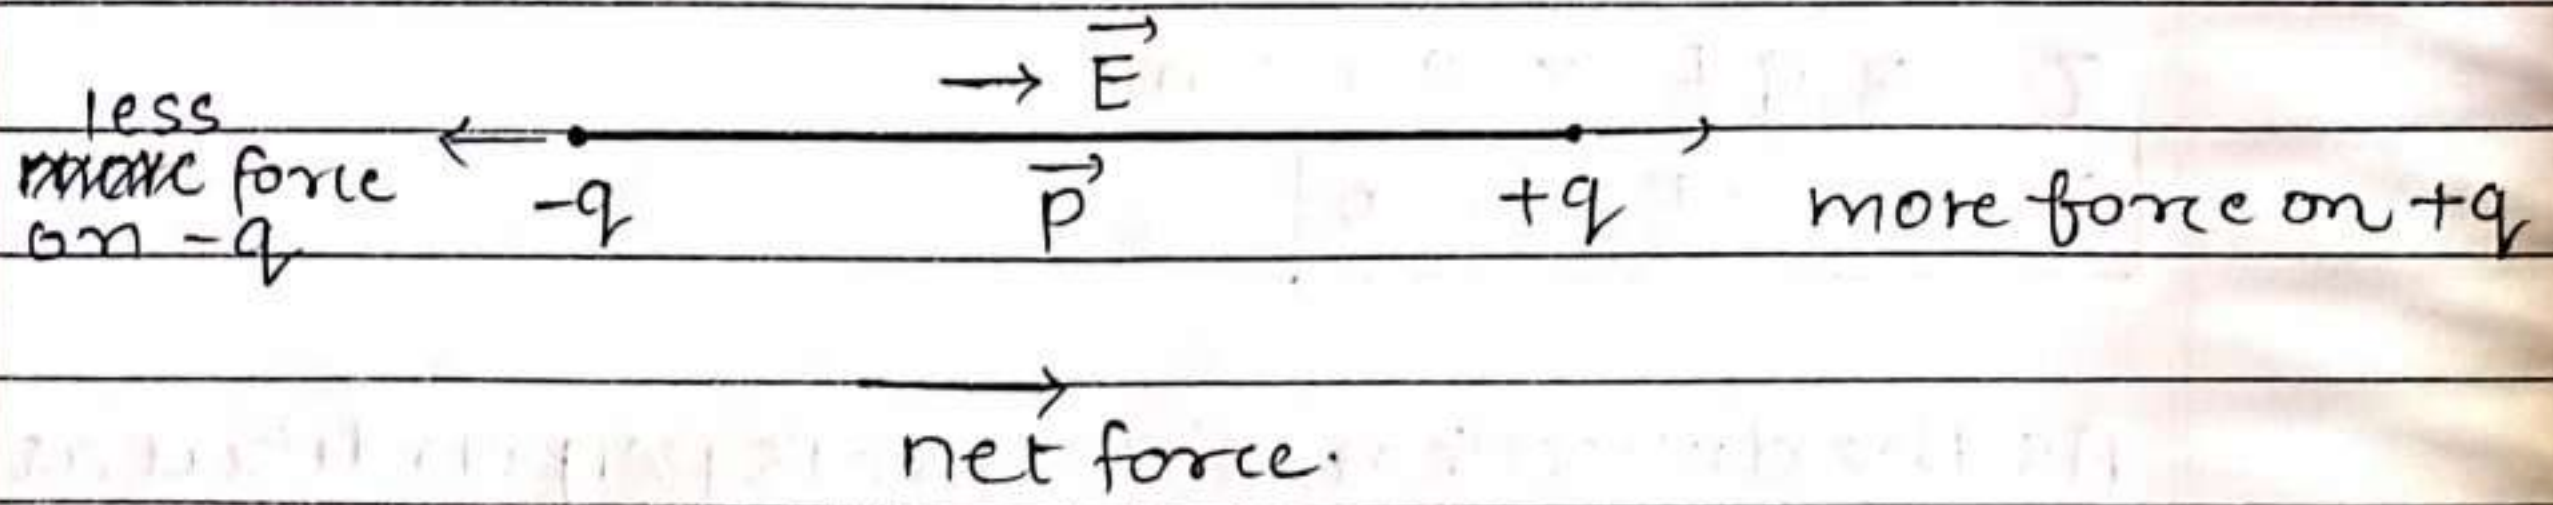 → E⃗
less
force
on -q
-q
P⃗
+q
more force on +q
net force.